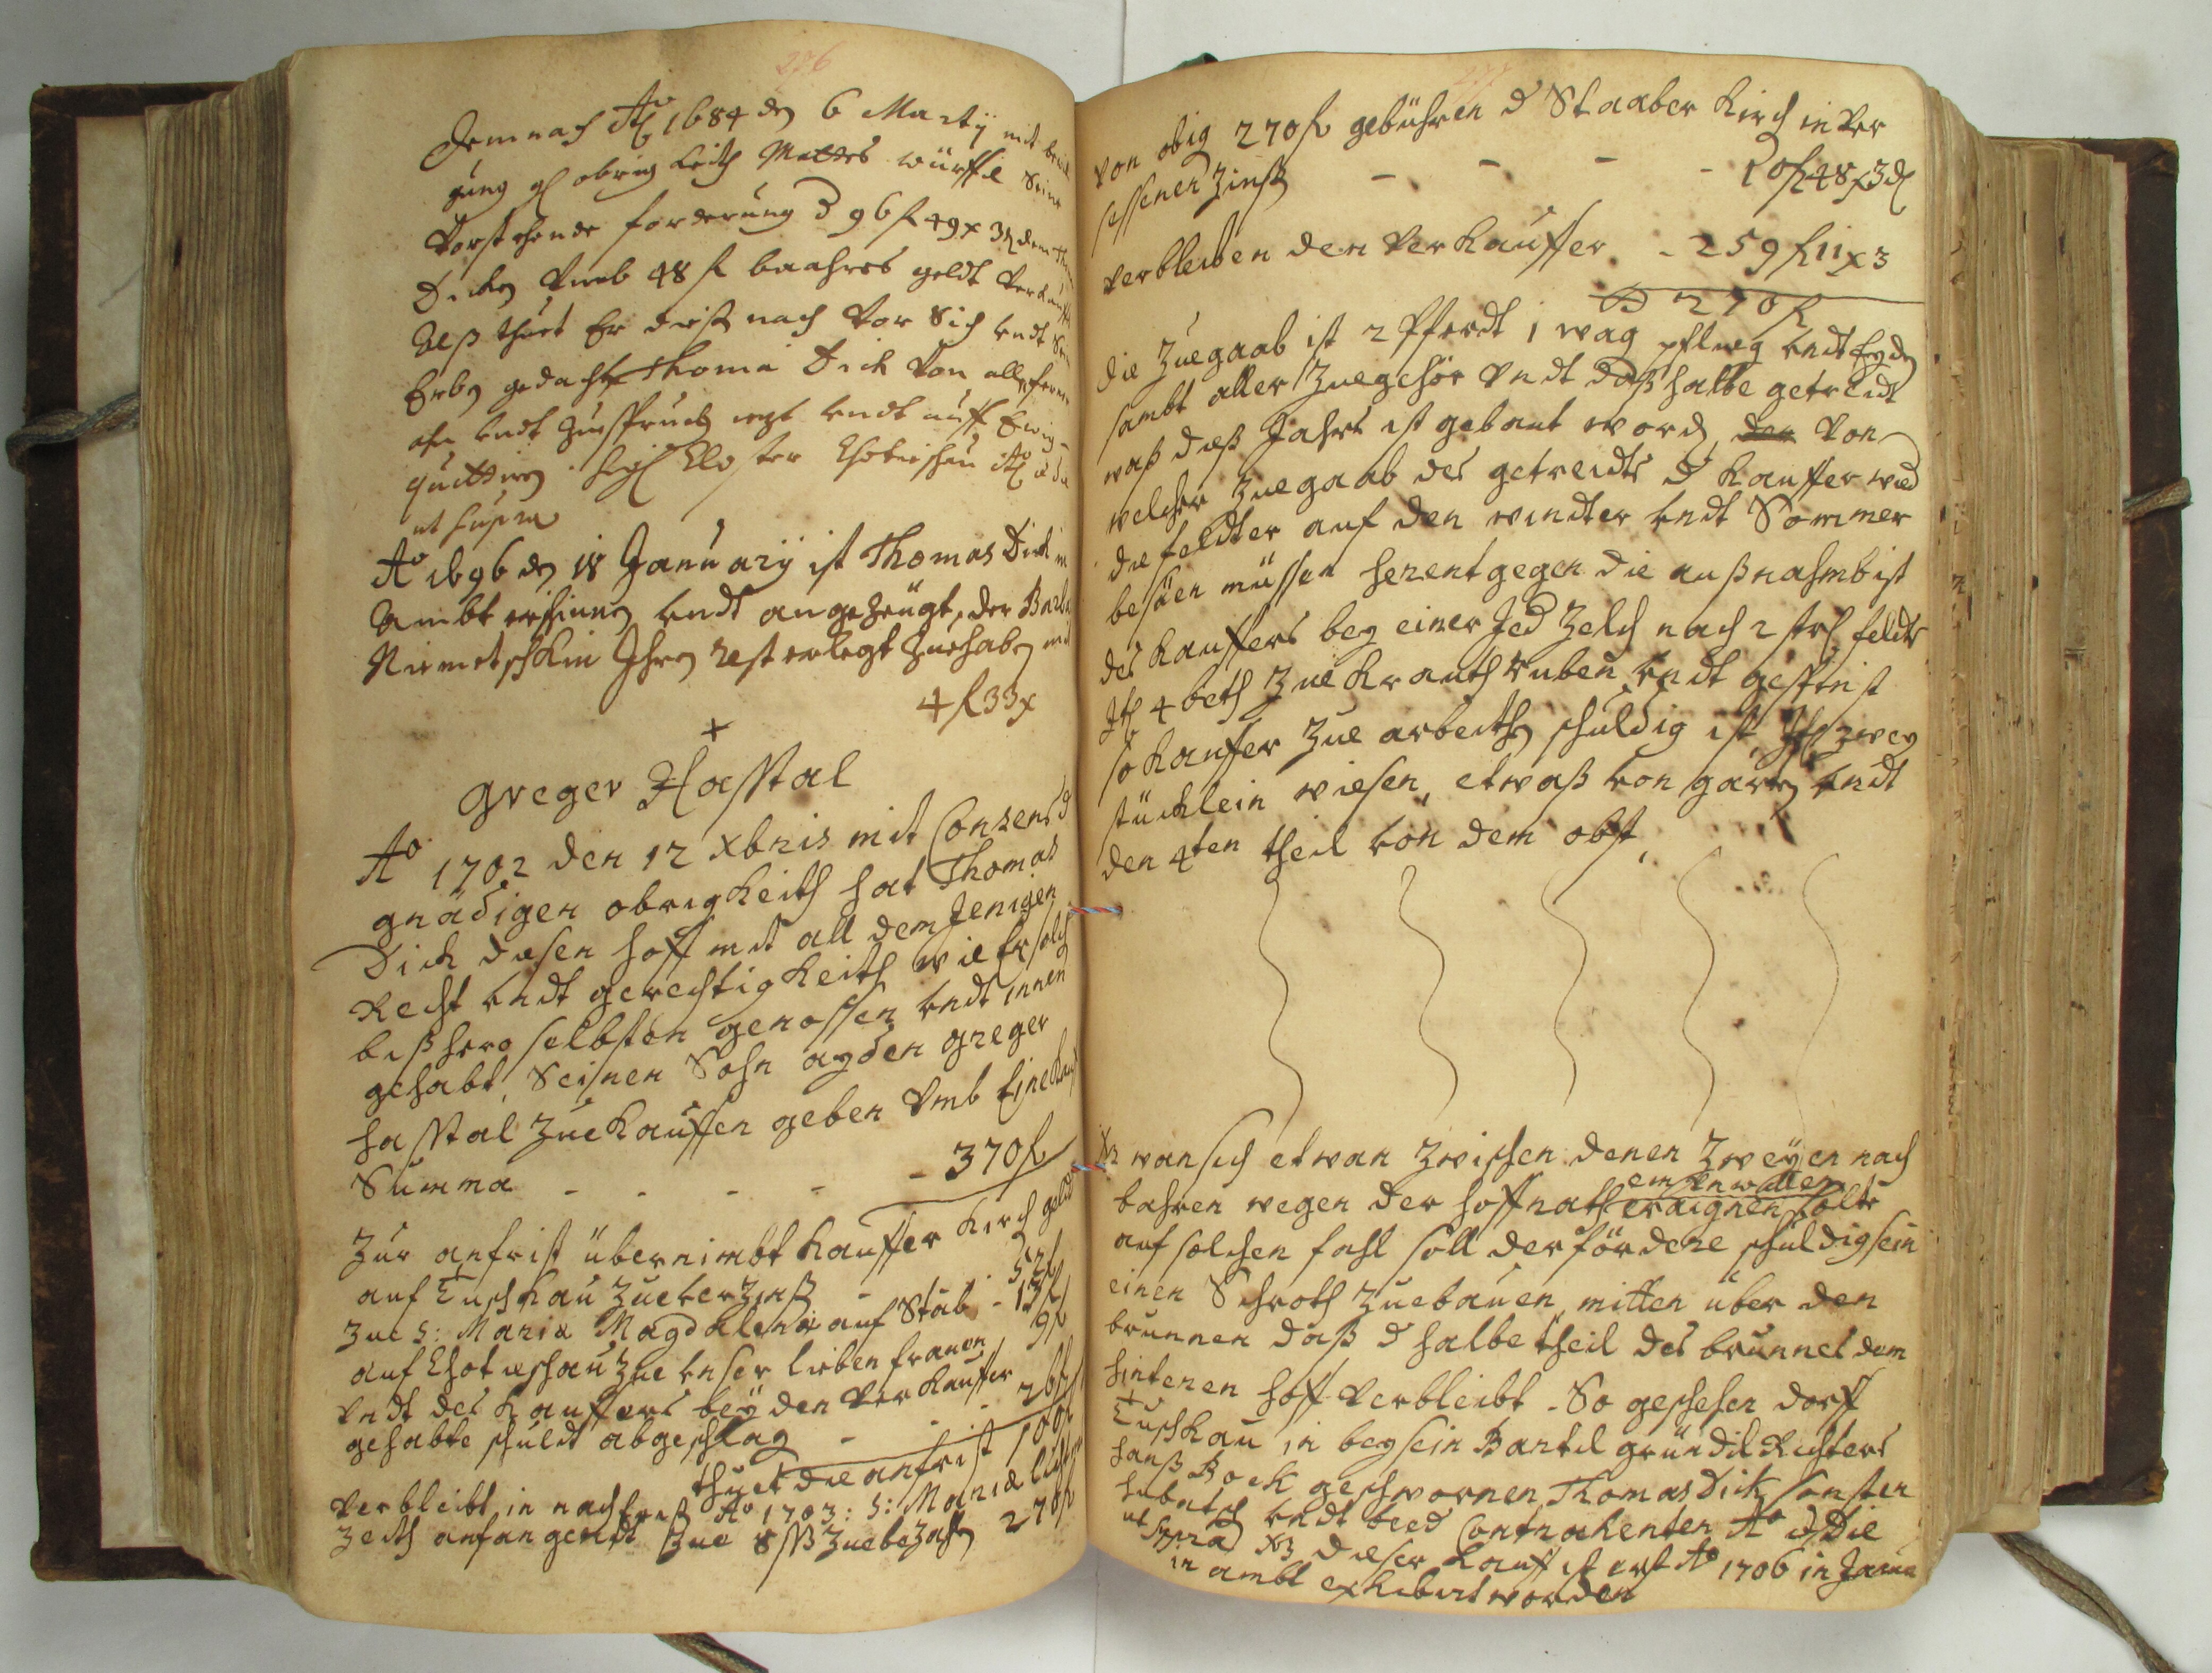 276
Demnach Aō 1684 den 6 Martij mit bewil
gung gl obrigkeith Mattes würffl seine
Vorstehende forderung d 96 f 49 x 3 d dem Thoma
Dicken Vmb 48 f baahres geldt verkaufft
Alß thuet Er diesß nach Vor Sich vndt Sein
Erben gedachten Thoma Dick von aller ferner
vndt Zuespruch iezt vndt auff Ewig
quittiren. Closter Chotieschau Aō
ut supra
Aō 1696 den 18 Januarij ist Thomas Dick in
Ambt erschienen vndt angezeügt, der Barbara
Niemetschkin Ihren rest erlegt Zuehaben mit
4 f 33 x
+
Greger Hasstal
Aō 1702 den 12 xbris mit Consens d
gnädigen obrigkeith hat Thomas
Dick diesen hoff mit all dem Jenigen
Recht vndt gerechtigkeith wie Er solch
bißhero selbsten genossen vndt innen
gehabt, Seinen Sohn ayden Greger
hasstal Zue Kauffen geben Vmb Eine Kauf
Summa - - - - - 370 f
Zur anfrist übernimbt Kauffer Kirch geldt
auf Tuschkau Zueverzinß - 52 f
Zue S: Maria Magdalena auf Stab - 13 f
auf Chotieschau Zue vnser lieben frauen 9 f
Vndt des Kauffers bey den Verkauffer
gehabte schuldt abgeschlag - - - 26 f
thuet die anfrist 100 f
Verbleibt in nachfrist Aō 1703: S: Maria licht
Zeith anfangendt Zue 8 f Zuebezahlen 270 f
277
Von obig 270 f gebühren d Staaber Kirch in Ver
sessenen Zinß - - - 10 f 48 x 3 d
Verbleiben den Verkauffer - 259 f 11 x 3
270 f
Die Zuegaab ist 2 Pferdt 1 wag pflueg vndt Eyden
sambt aller Zuegehör vndt daß halbe getreidt
waß dieß Jahrs ist gebaut worden, den Von
welcher Zuegaab des getreidts d Kauffer wied
die feldter auf den windter vndt Sommer
besäen müssen herentgegen die außnahmb ist
des Kauffers bey einer Jed Zelch nach 2 str feldts
Itē 4 beth Zue Krauth ruben vndt gespinst
so Kauffer Zue arbeithen schuldig ist, Itē zwey
stücklein wiesen, etwaß von garten vndt
den 4ten theil von dem obst,
NB wan sich etwan Zwischen denen Zweyen nach
bahren wegen der hoffrath eraignen solte
auf solchen fahl soll der fördere schuldig sein
einen Schroth Zuebauen, mitten über den
brunnen daß d halbe theil des brunnes dem
hinteren hoff Verbleibt. So geschehen dorff
Tuschkau in beysein Bartl gründil Richters
hanß Bock geschwornen, Thomas Dick sonsten
hubatsch vndt beed Contrahenten Aō et Die
ut supra NB dieser Kauff ist erst Aō 1706 in Janua
in ambt exhibirt worden